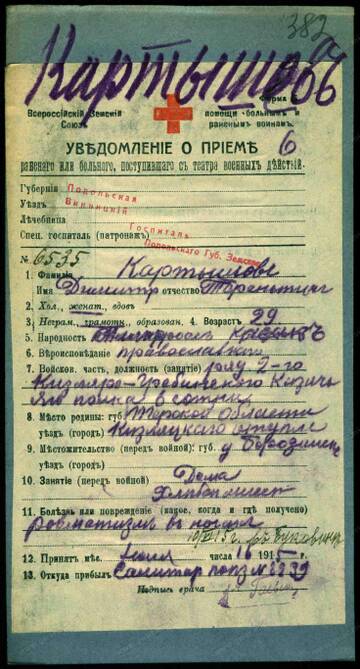 382
Картышовъ
Всероссійскій Земскій
Союзъ
Форма
помощи больнымъ и
раненымъ воинамъ.
УВѢДОМЛЕНІЕ О ПРІЕМѢ 6
раненаго или больного, поступившаго съ театра военныхъ дѣйствій.
Губернія Подольская
Уѣздъ Винницкій
Лѣчебница Госпиталь
Спец. госпиталь (патронажъ) Подольскаго Губ. Земства
№ 6535
1. Фамилія Картышовъ
Имя Димитр отчество
2. Хол., женат., вдов.
3. Неграм., грамотн., образован. 4. Возрастъ 29
5. Народность казакъ
6. Вѣроисповѣданіе православнаго
7. Войсков. часть, должность (занятіе) ряд 2-го
Кизляро-Гребенского Казачь
яго полка 2 сотни
8. Мѣсто родины: губ. Терской Области
уѣздъ (городъ) Кизлярскаго
9. Мѣстожительство (передъ войной): губ.
уѣздъ (городъ)
10. Занятіе (передъ войной) Дома
Хлебопашест
11. Болѣзнь или поврежденіе (какое, когда и гдѣ получено)
Ревматизмъ въ ногахъ
Буковинѣ
12. Принятъ мѣс. числа 16 1915
13. Откуда прибылъ Санитар поѣз №
Подпись врача